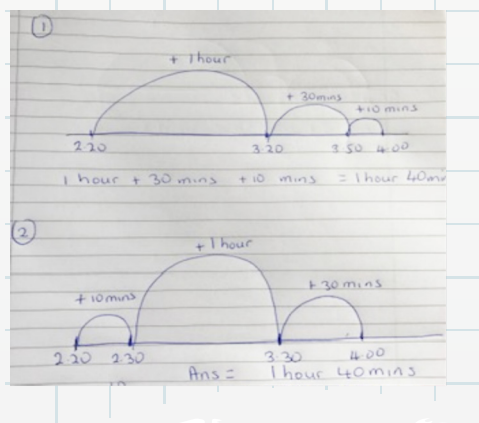 1
+ 1 hour
+ 30mins
+10 mins
2.20 3.20 3.50 4.00
1 hour + 30 mins +10 mins = 1 hour 40m
2
+ 1 hour
+ 30 mins
+ 10 mins
2.20 2.30 3.30 4.00
Ans = 1 hour 40mins